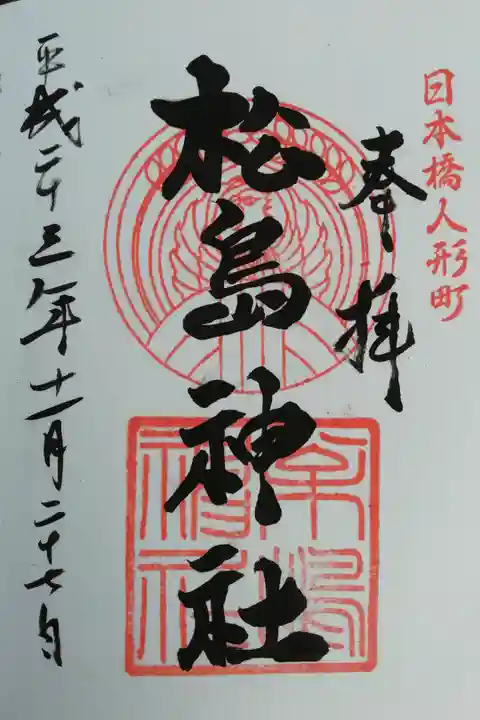 日本橋人形町
奉拝
松島神社
平成二十三年十一月二十七日